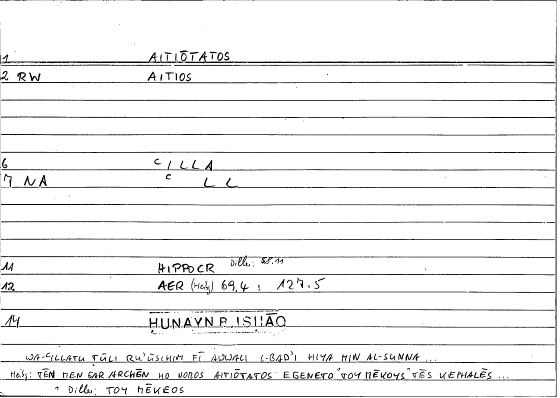 1 AITIŌTATOS
2 RW AITIOS
6 ʿILLA
7 NA ʿ LL
11 HIPPOCR Diller: 58.11
12 AER (Heig) 69,4 : 127.5
14 HUNAYN B. ISHAQ
WA-ʿILLATU ṬŪLI RU'ŪSIHIM FĪ AWWALI L-BAD'I HIYA MIN AL-SUNNA ...
Heig: TĒN MEN GAR ARCHĒN HO NOMOS AITIŌTATOS EGENETO "TOY MĒKOYS" TĒS KEPHALĒS ...
" Diller: TOY MĒKEOS